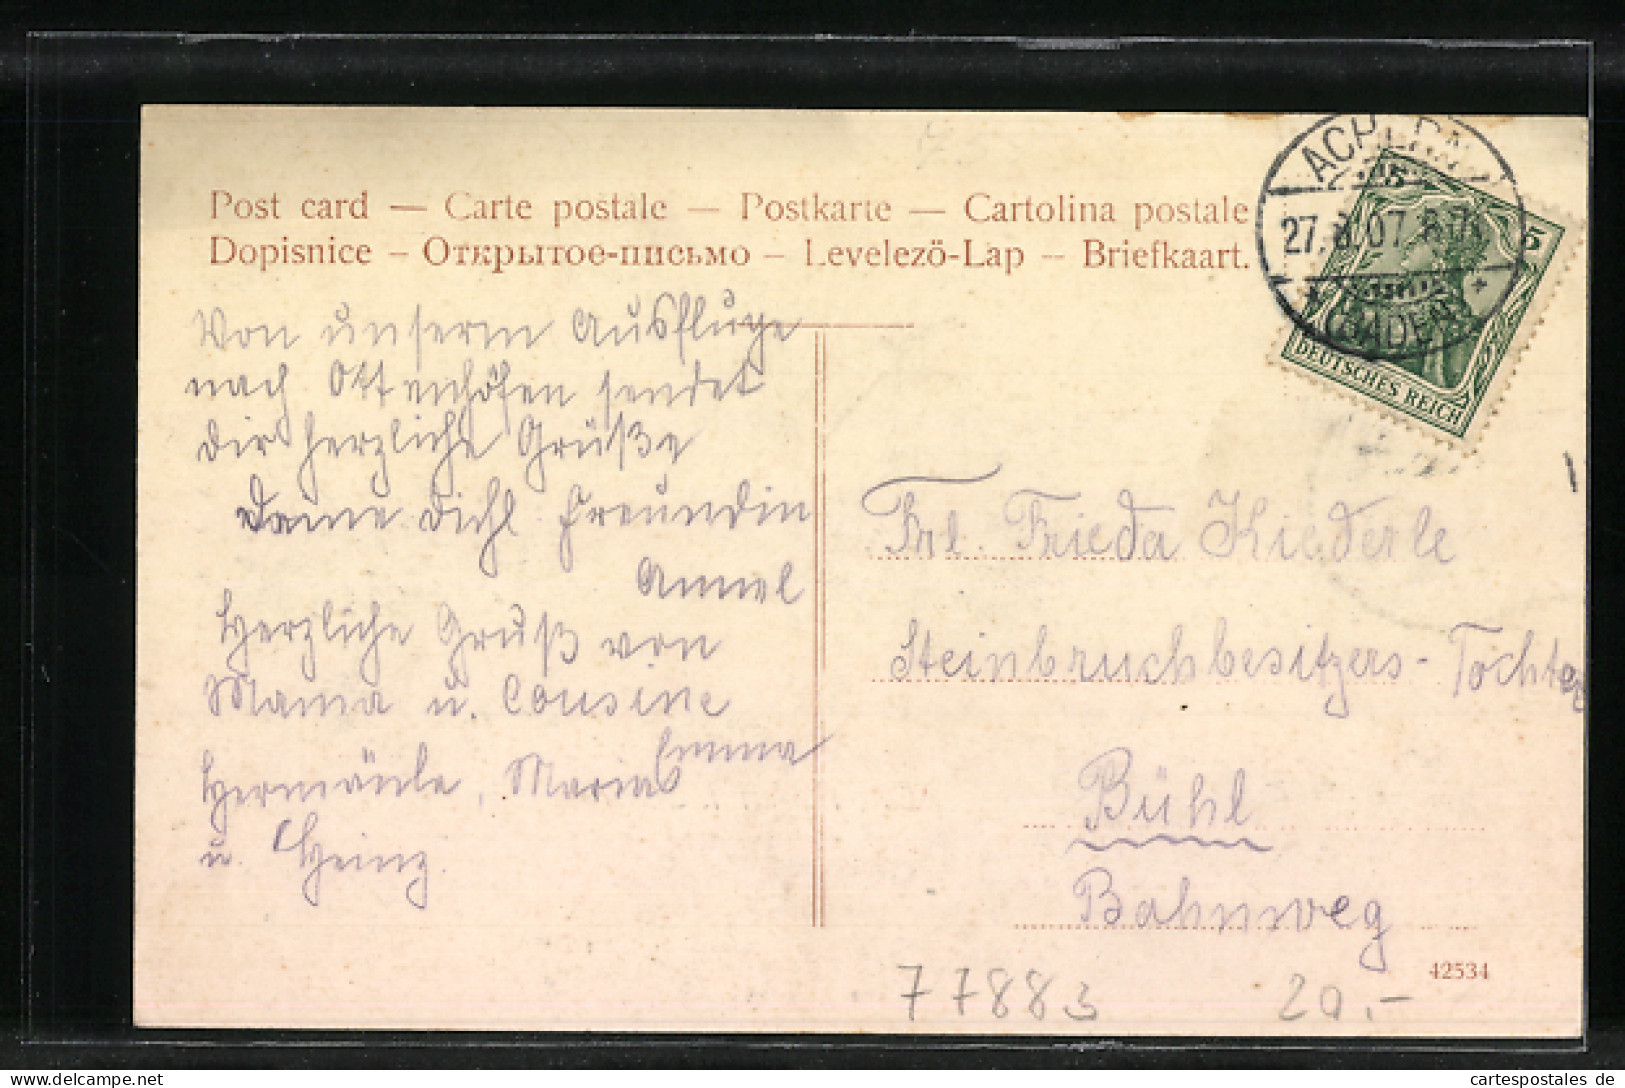 Post card — Carte postale — Postkarte — Cartolina postale
Dopisnice – Открытое-письмо – Levelező-Lap – Briefkaart.
ACHERN
27.8.07. 6-7
* (BADEN) *
5 5
DEUTSCHES REICH
Von unserm Ausfluge
nach Ottenhöfen sendet
dir herzliche Grüße
Deine Freundin
Herzliche Gruß von
Mama u. Cousine
Emma
Hermänle, Maria
u. Heinz.
Frl. Frieda Kiederle
Steinbruchbesitzers-Tochter
Bühl
Bahnweg
42534
77883 20.-
cartespostales de